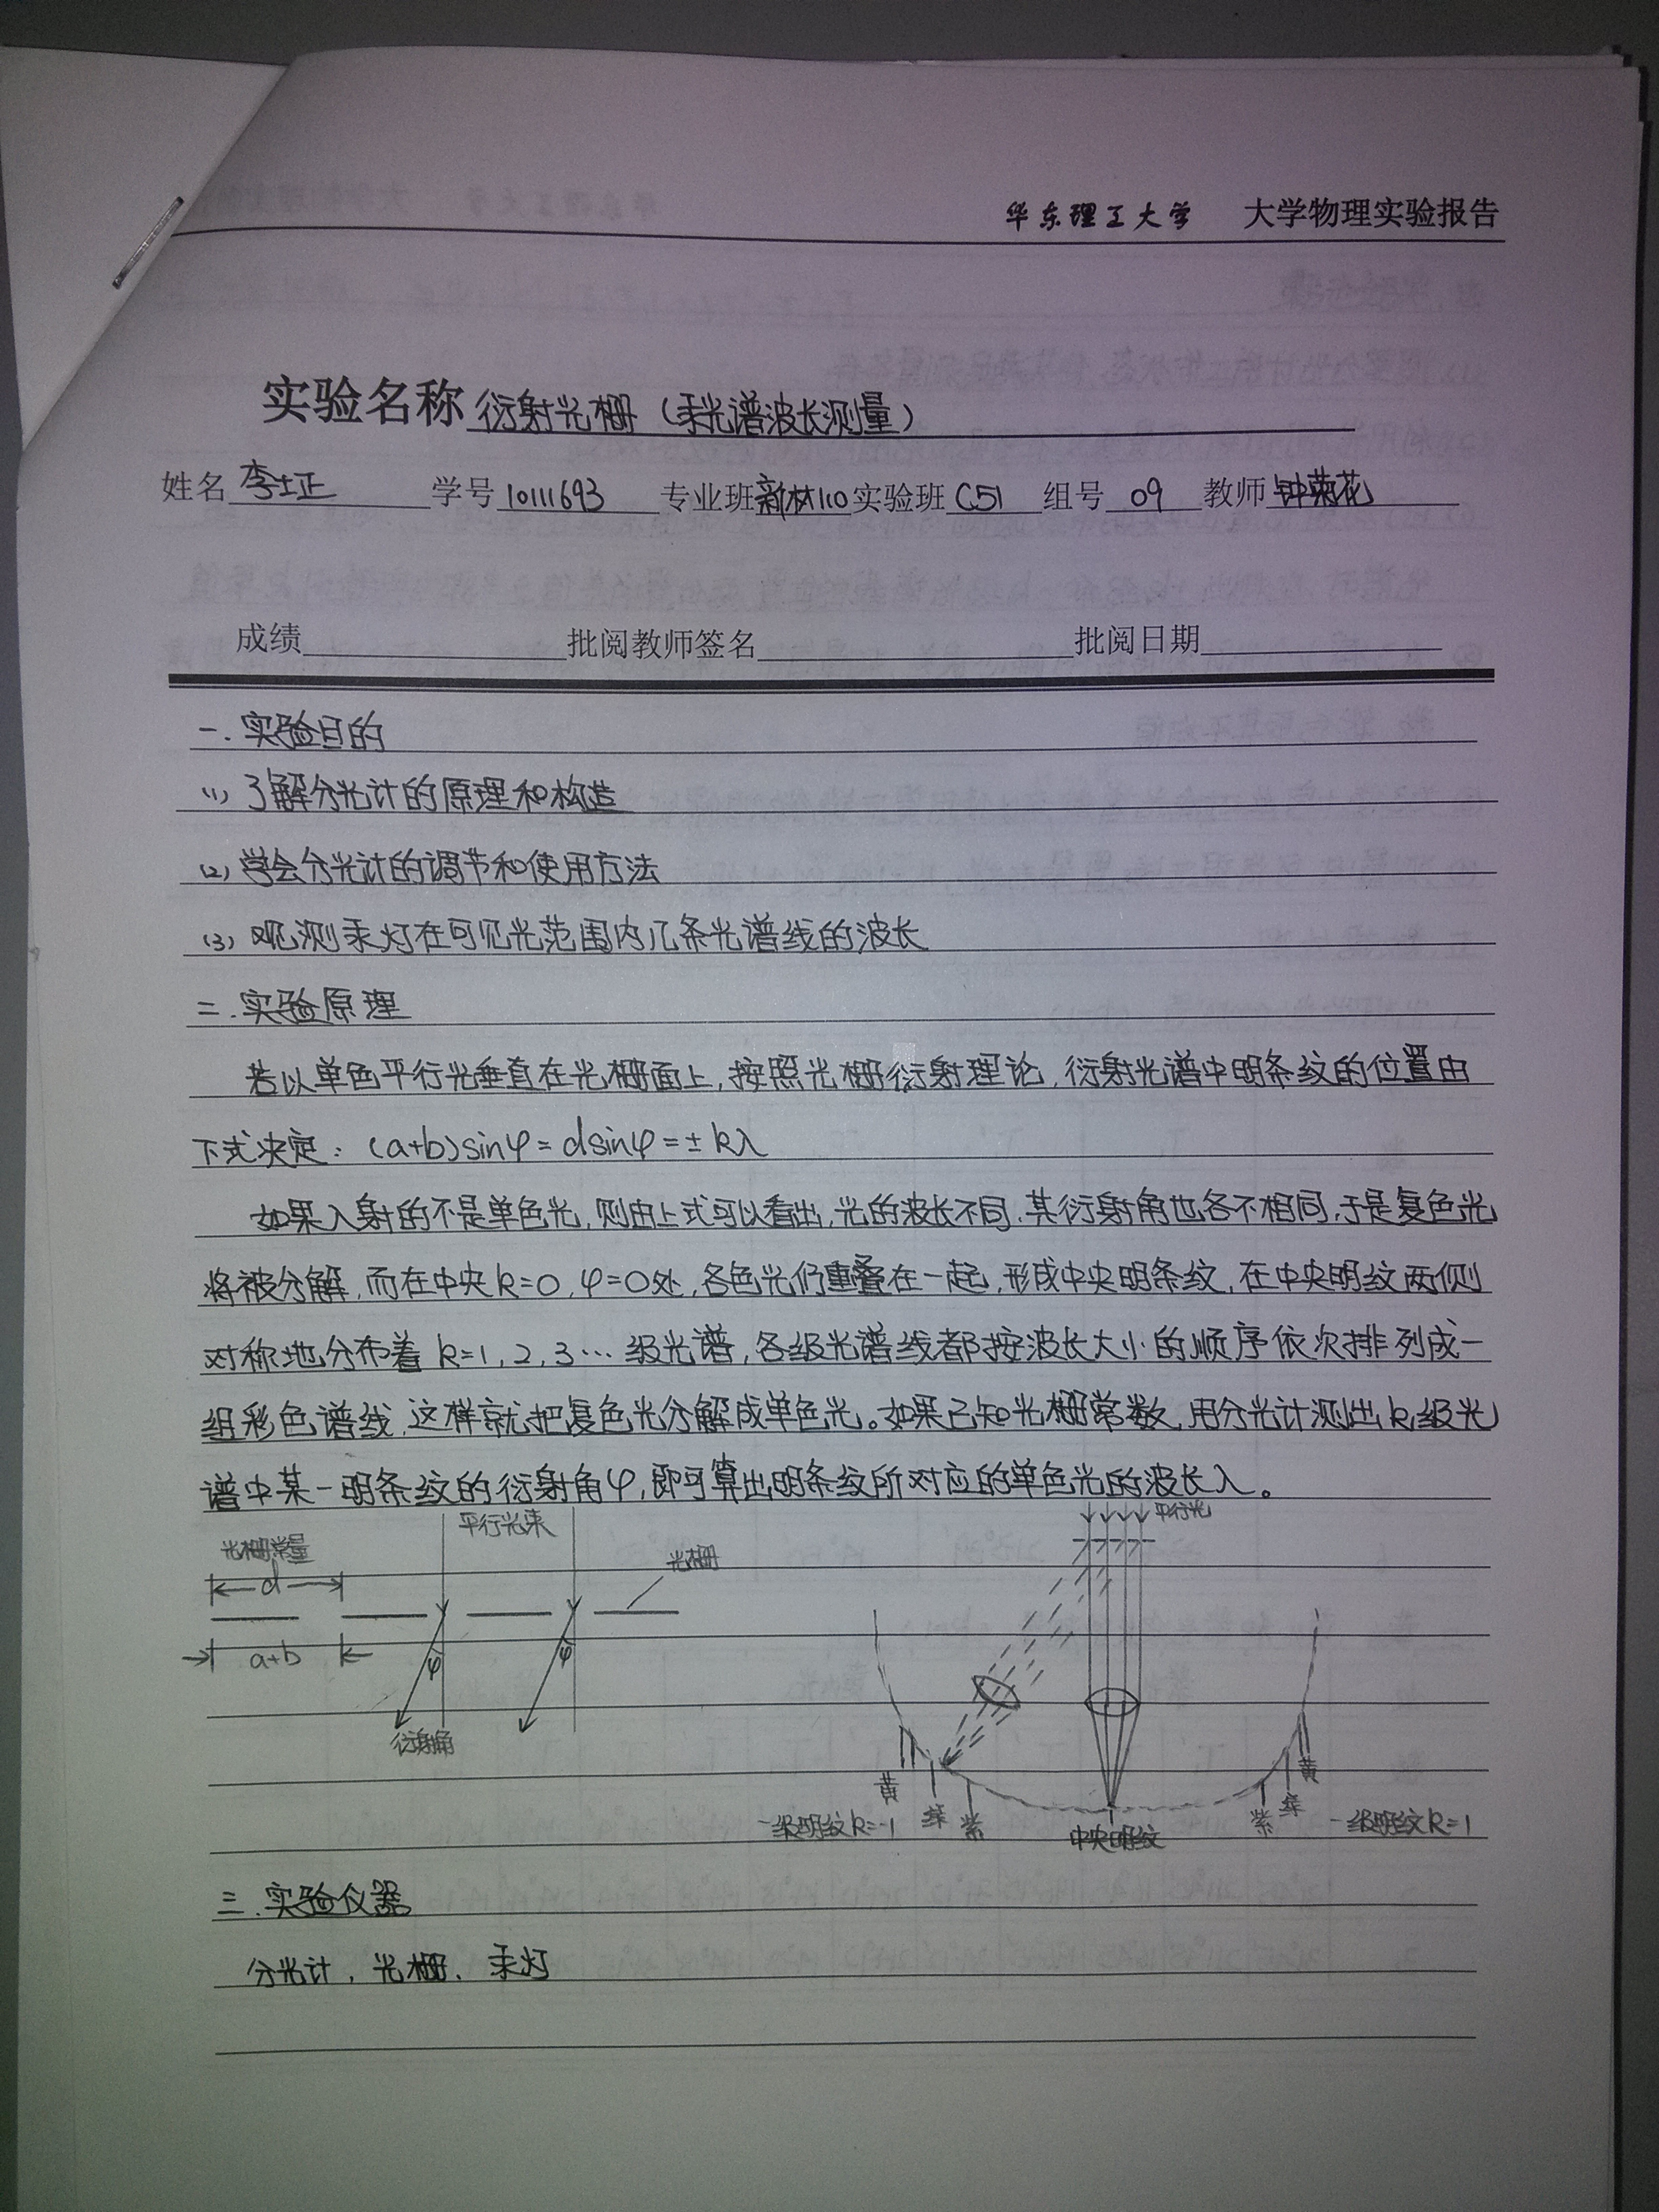 华东理工大学 大学物理实验报告
实验名称 衍射光栅（汞光谱波长测量）
姓名 李士正 学号 10111693 专业班 新材110 实验班 C51 组号 09 教师 钟菊花
成绩 批阅教师签名 批阅日期
一.实验目的
(1) 了解分光计的原理和构造
(2) 学会分光计的调节和使用方法
(3) 观测汞灯在可见光范围内几条光谱线的波长
二.实验原理
若以单色平行光垂直在光栅面上,按照光栅衍射理论,衍射光谱中明条纹的位置由
下式决定: (a+b)sinφ=dsinφ=±kλ
如果入射的不是单色光,则由上式可以看出,光的波长不同,其衍射角也各不相同,于是复色光
将被分解,而在中央k=0,φ=0处,各色光仍重叠在一起,形成中央明条纹,在中央明纹两侧
对称地分布着 k=1,2,3…级光谱,各级光谱线都按波长大小的顺序依次排列成一
组彩色谱线,这样就把复色光分解成单色光。如果已知光栅常数,用分光计测出k级光
谱中某一明条纹的衍射角φ,即可算出明条纹所对应的单色光的波长λ。
平行光束 平行光
光栅常量 光栅
d
a+b φ φ
衍射角
黄 绿 紫 紫 绿 黄
一级明纹k=-1 中央明纹 一级明纹k=1
三.实验仪器
分光计、光栅、汞灯